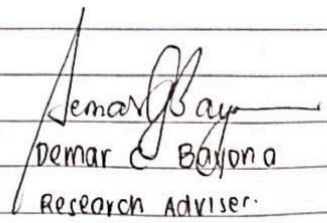 Demar C Bayona
Research Adviser.